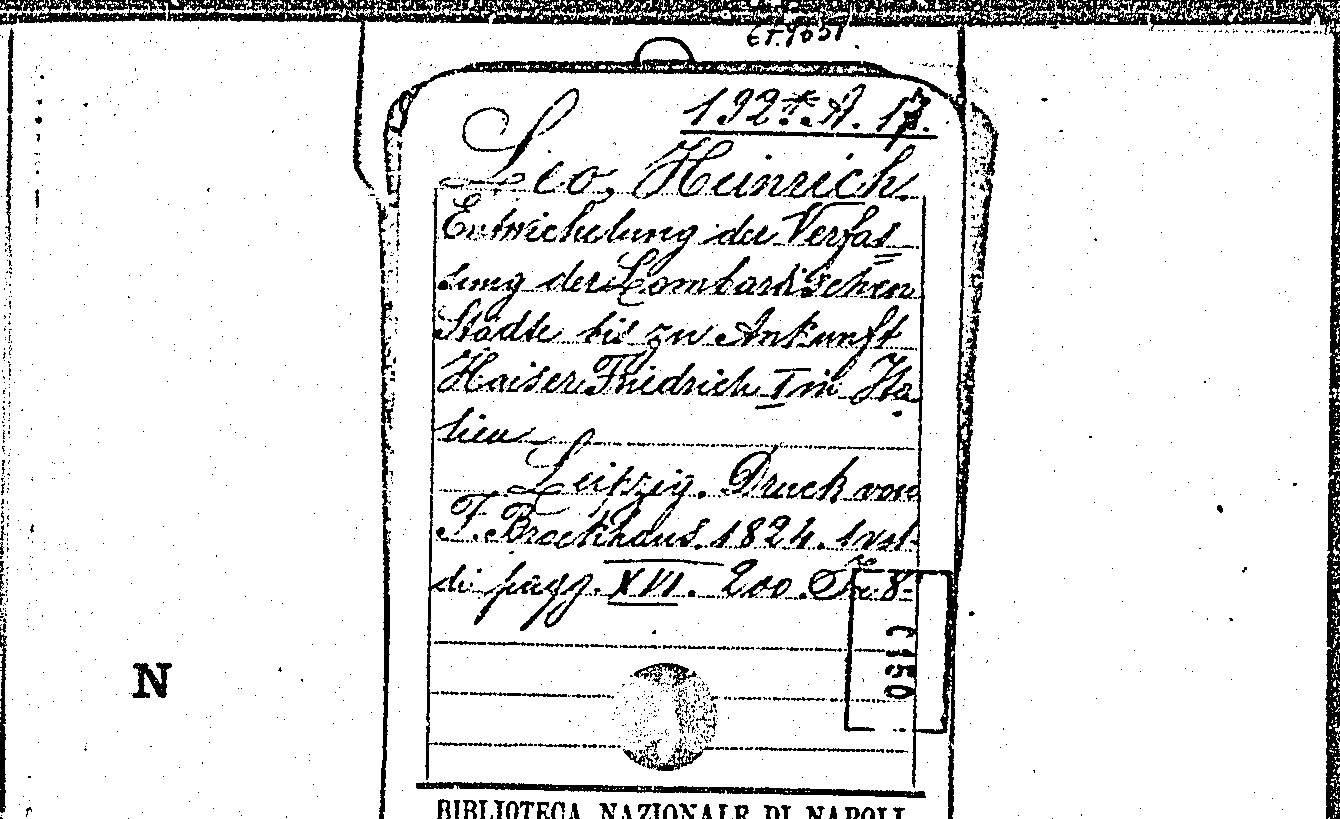 192.* A. 17.
Leo, Heinrich.
Entwichelung der Verfas
sung der Lombardischen
Städte bis zu Ankunft
Kaiser Friedrich I in Ita
lien
Leipzig. Druck von
F. Brockhaus. 1824. 1 vol.
di pagg. XVI. 200. In 8.
C150
N
BIBLIOTECA NAZIONALE DI NAPOLI